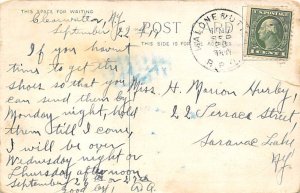 THIS SPACE FOR WRITING
POST
THIS SIDE IS FOR
Clearwater, NY.
September 23
If you havent
time to get the
shoes so that you
can send them by
Monday night, hold
them till I come,
I will be over
Wednesday night or
Thursday afternoon
September
Good by
MALONE & UTICA
R.P.O.
Miss. H. Marion Hurley,
22 Terrace Street
Saranac Lake
NY